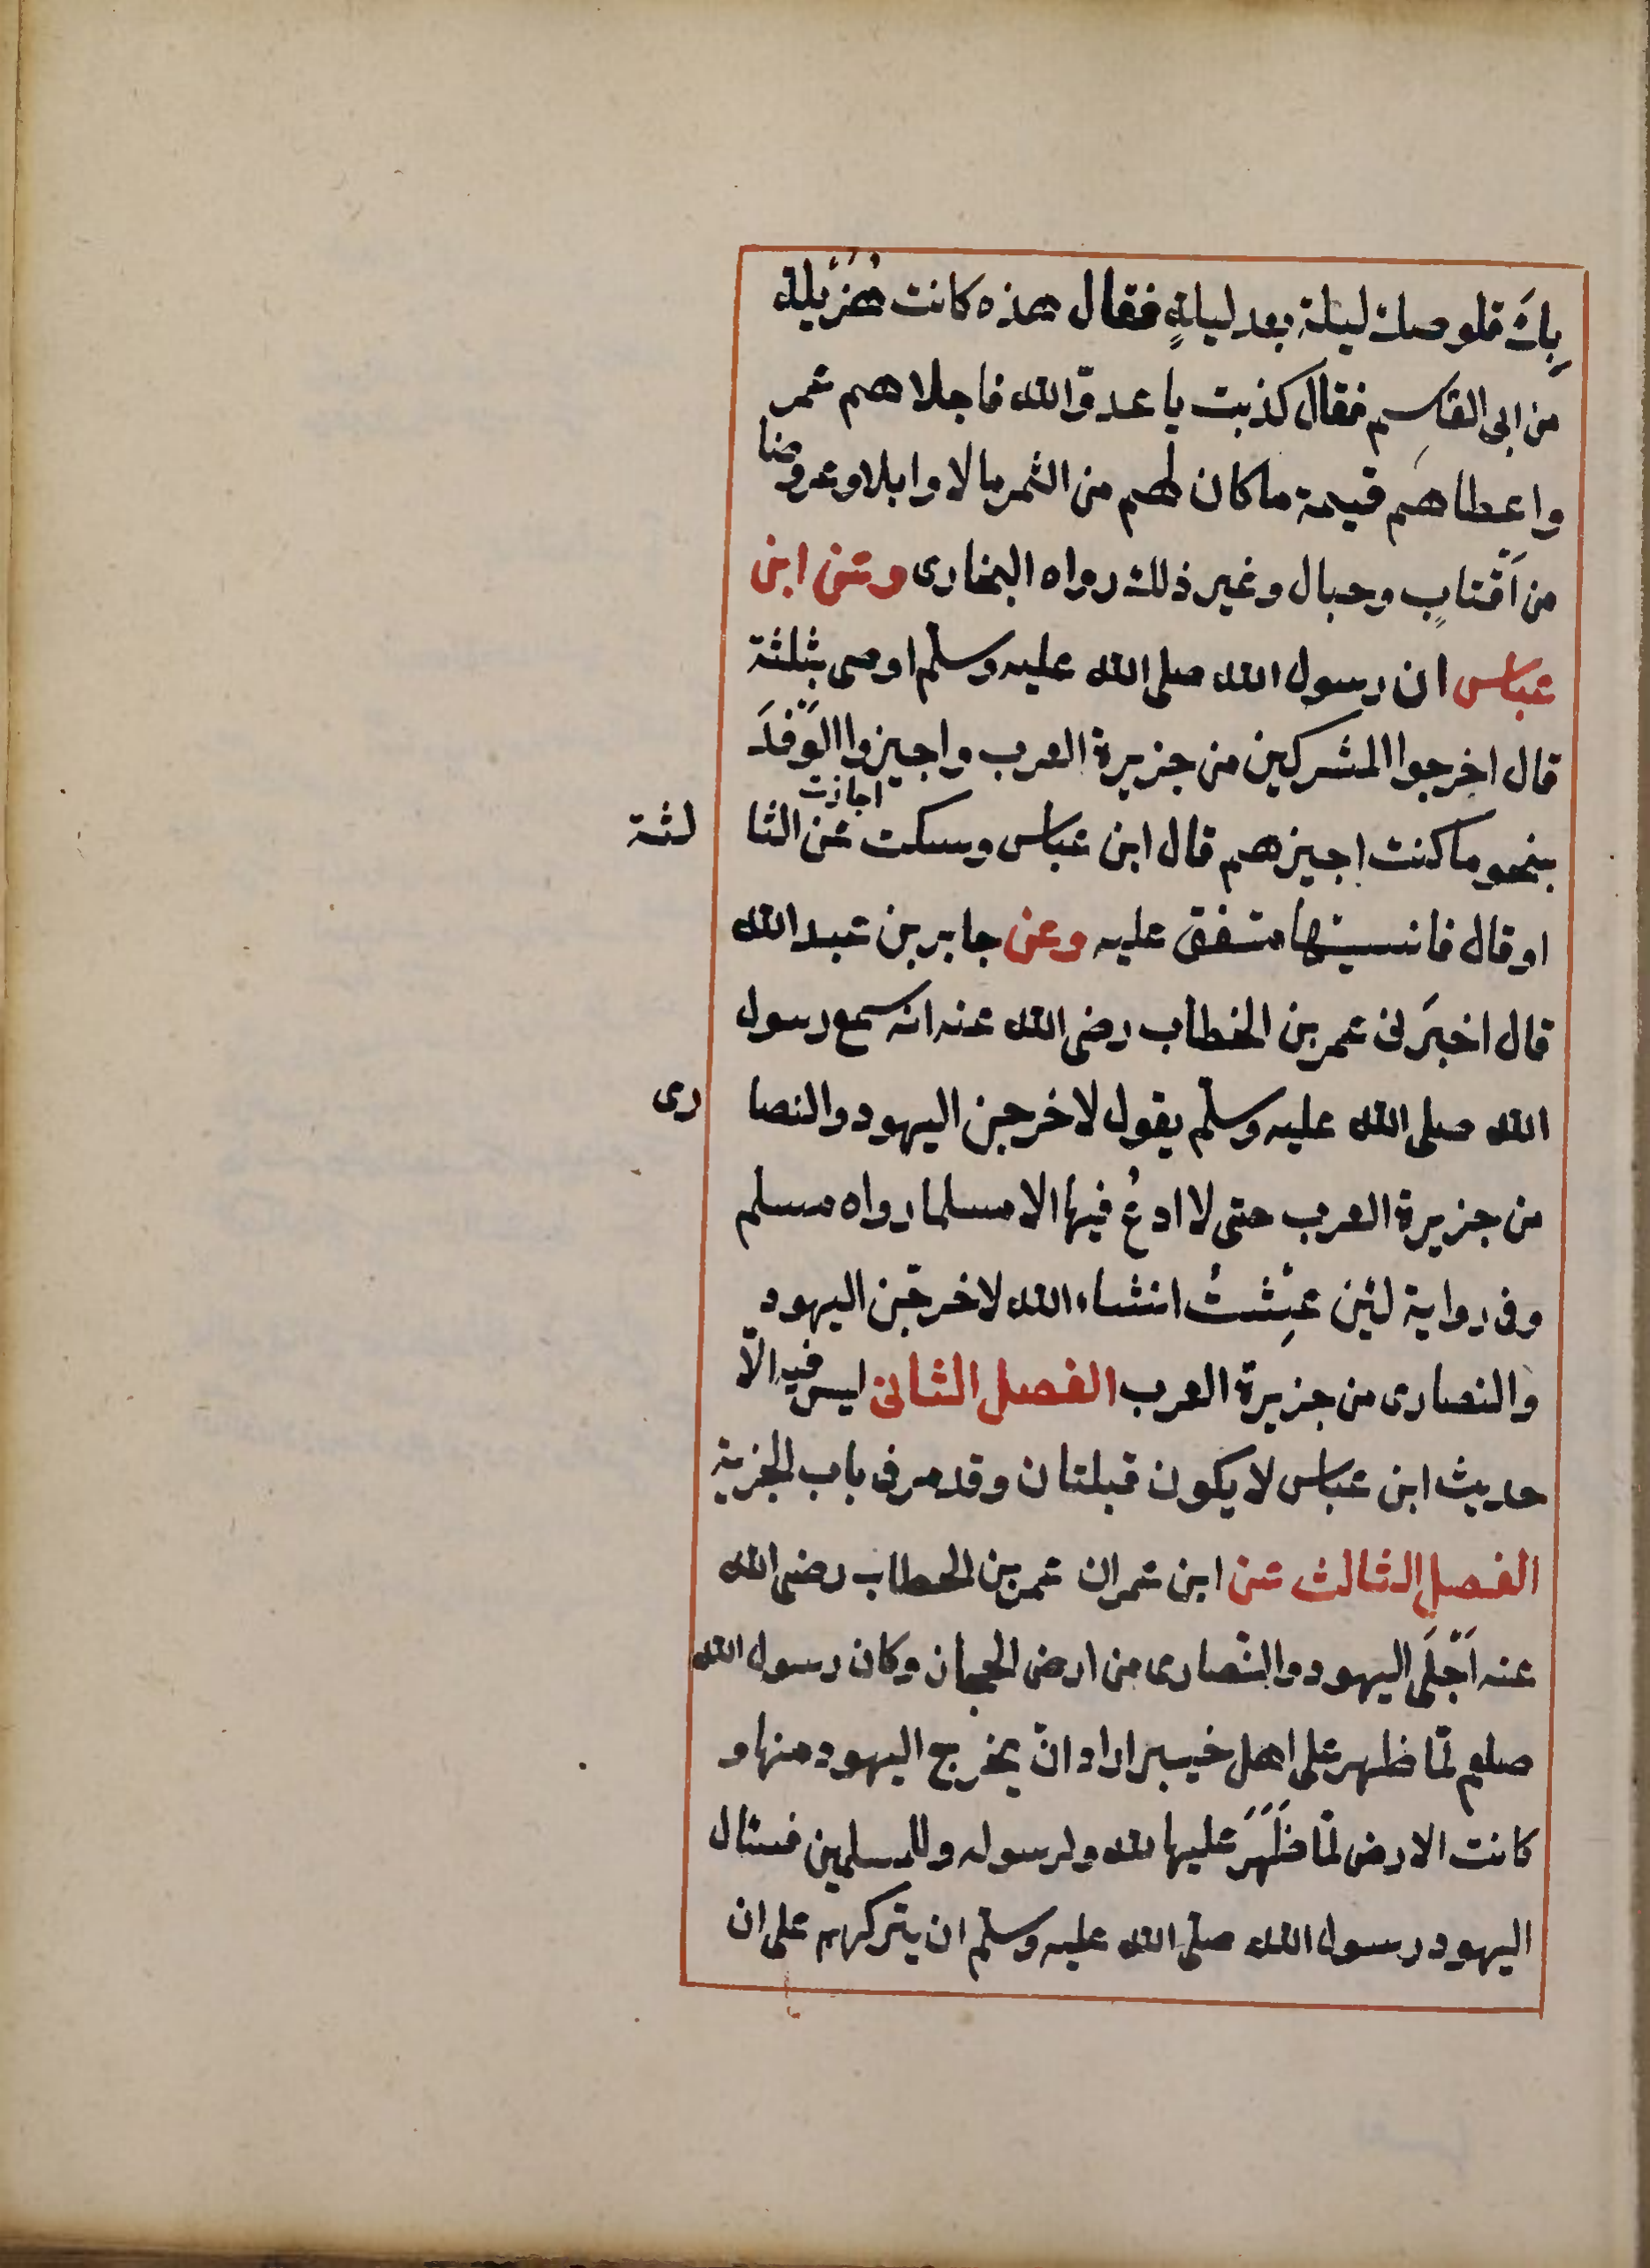 بِكَ قلوصك ليلة بعد ليلةٍ فقال هذه كانت هُزَيْلة
من ابى القاسم فقال كذبت يا عدوّ الله فاجلاهم عمر
واعطاهم قيمة ما كان لهم من الثمر مالا وابلا وعروضا
من اَقْتابٍ وحبال وغير ذلك رواه البخارى وعن ابن
عباس ان رسول الله صلى الله عليه وسلّم اوصى بثلثة
قال اخرجوا المشركين من جزيرة العرب واجيزوا الوَفْدَ
بنحو ما كنت اجيزهم قال ابن عباس وسكت عن الثالثة
اجازت
او قال فانسيتها متفق عليه وعن جابر بن عبد الله
قال اخبَرنى عمر بن الخطاب رضى الله عنه انه سمع رسول
الله صلى الله عليه وسلّم يقول لاخرجن اليهود والنصارى
من جزيرة العرب حتى لا ادعُ فيها الا مسلما رواه مسلم
وفى رواية لئن عِشْتُ انشاء الله لاخرجّن اليهود
والنصارى من جزيرة العرب الفصل الثانى ليس فيه الّا
حديث ابن عباس لا يكون قبلتان وقد مر فى باب الجزية
الفصل الثالث عن ابن عمر ان عمر بن الخطاب رضى الله
عنه اَجْلَى اليهود والنّصارى من ارض الحجاز وكان رسول الله
صلعم لمّا ظهر على اهل خيبر اراد انْ يخرج اليهود منها و
كانت الارض لمّا ظَهَرَ عليها لله ولرسوله وللمسلمين فسئال
اليهود رسول الله صلّى الله عليه وسلّم ان يتركهم على ان